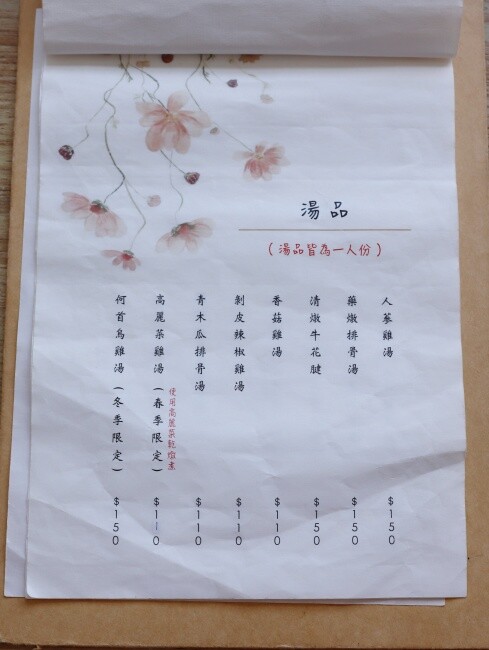 湯品
（湯品皆為一人份）
人蔘雞湯 $150
藥燉排骨湯 $150
清燉牛花腱 $150
香菇雞湯 $110
剝皮辣椒雞湯 $110
青木瓜排骨湯 $110
高麗菜雞湯（春季限定） $110
使用高麗菜乾燉煮
何首烏雞湯（冬季限定） $150